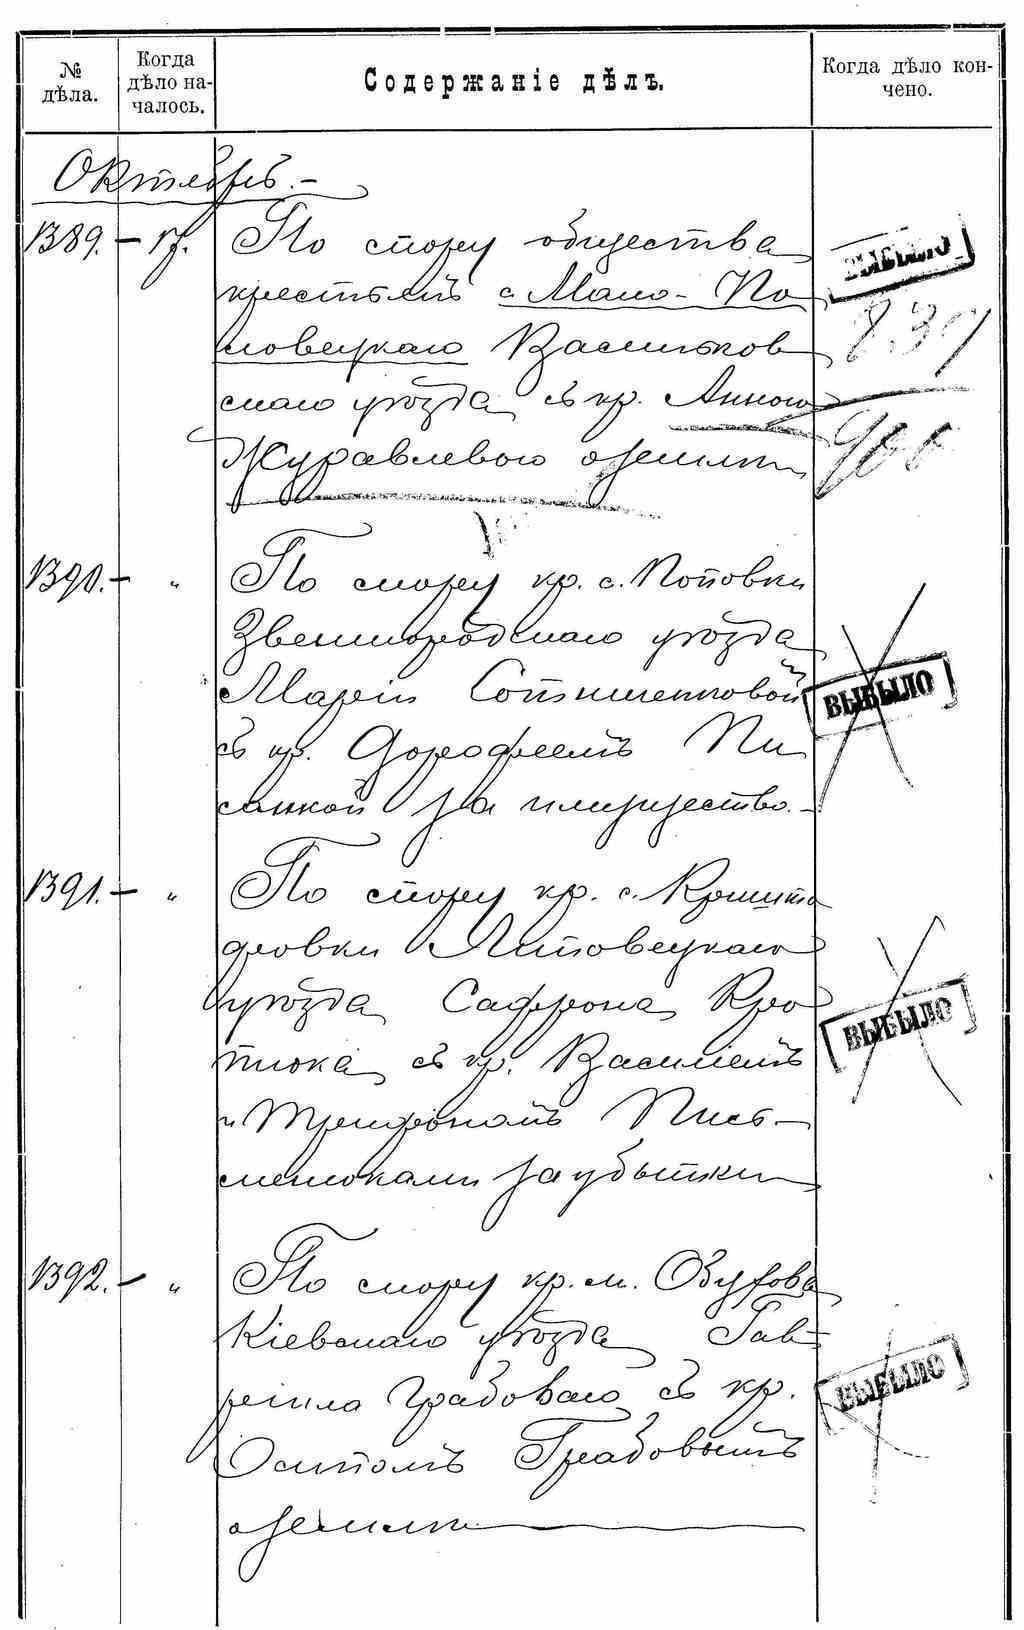 № дѣла.
Когда дѣло началось.
Содержаніе дѣлъ.
Когда дѣло кончено.
Октябрь.-
1389. - 17. По спору общества
крестьянъ с. Мало-По
ловецкаго Васильков
скаго уѣзда съ кр. Анною
Журавлевою о землѣ
ВЫБЫЛО
839
900
1390. - " По спору кр. с. Поповки
Звенигородскаго уѣзда
Маріи Сотниченковой
съ кр. Дорофеемъ Пи
санкой за имущество.-
ВЫБЫЛО
1391. - " По спору кр. с. Кришто
фовки Липовецкаго
уѣзда Сафрона Кро
тюка съ кр. Василіемъ
и Трифономъ Пись-
менюками за убытки
ВЫБЫЛО
1392. - " По спору кр. м. Обухова
Кіевскаго уѣзда Гав-
ріила Грабоваго съ кр.
Осипомъ Грабовымъ
о землѣ
ВЫБЫЛО